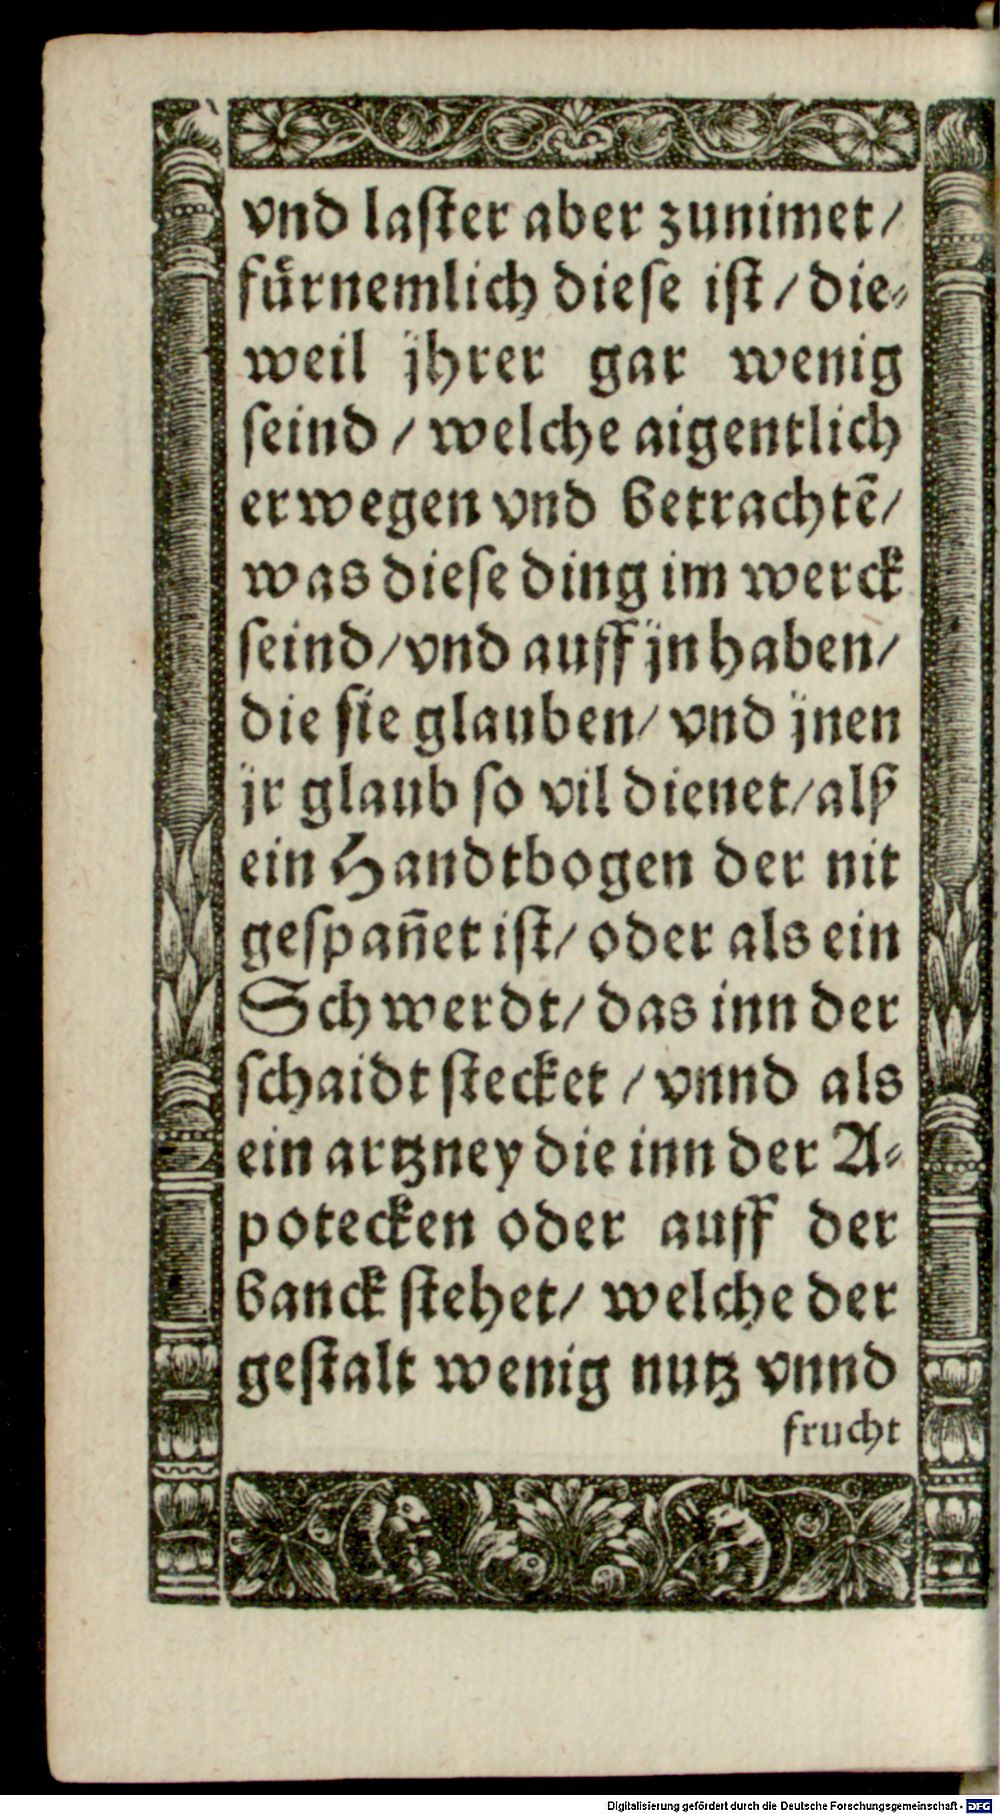 vnd laster aber zunimet/
fuͤrnemlich diese ist/ die⸗
weil jhrer gar wenig
seind/ welche aigentlich
erwegen vnd betrachtē/
was diese ding im werck
seind/ vnd auff jn haben/
die sie glauben/ vnd jnen
jr glaub so vil dienet/ alß
ein Handtbogen der nit
gespañet ist/ oder als ein
Schwerdt/ das inn der
schaidt stecket/ vnnd als
ein artzney die inn der A⸗
potecken oder auff der
banck stehet/ welche der
gestalt wenig nutz vnnd
frucht
Digitalisierung gefördert durch die Deutsche Forschungsgemeinschaft - DFG